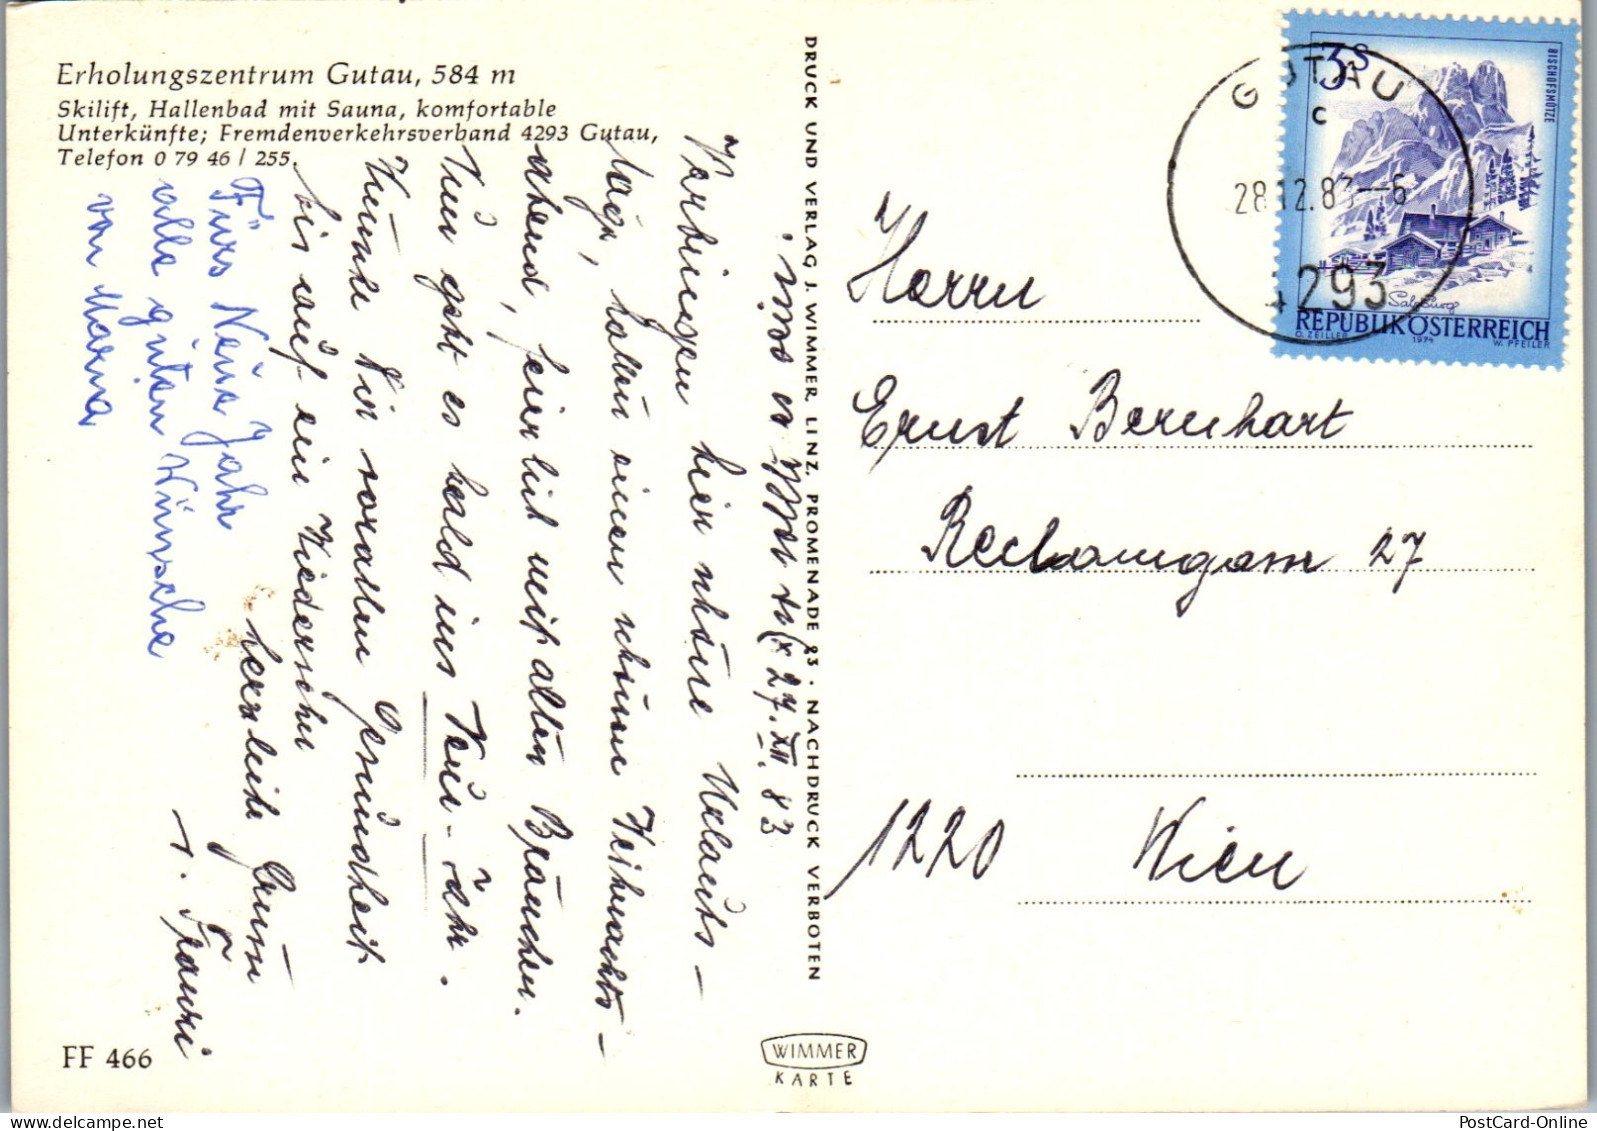 Erholungszentrum Gutau, 584 m
Skilift, Hallenbad mit Sauna, komfortable
Unterkünfte; Fremdenverkehrsverband 4293 Gutau,
Telefon 0 79 46 / 255.
27. XII. 83
Verbringen hier schöne Urlaubs-
tage, hatten einen schönen Weihnachts-
abend, feierlich mit alten Bräuchen.
Nun geht es bald ins Neue-Jahr.
Wünsche Dir vor allem Gesundheit
bis auf ein Wiedersehn
herzliche Grüße
Fürs Neue Jahr
alle guten Wünsche
von
FF 466
DRUCK UND VERLAG J. WIMMER, LINZ, PROMENADE 23 · NACHDRUCK VERBOTEN
WIMMER
KARTE
GUTAU
c
28.12.83--6
4293
3 S
BISCHOFSMÜTZE
Salzburg
REPUBLIK ÖSTERREICH
O. ZEILLER 1974 W. PFEILER
Herrn
Ernst Bernhart
27
1220 Wien
PostCard-Online